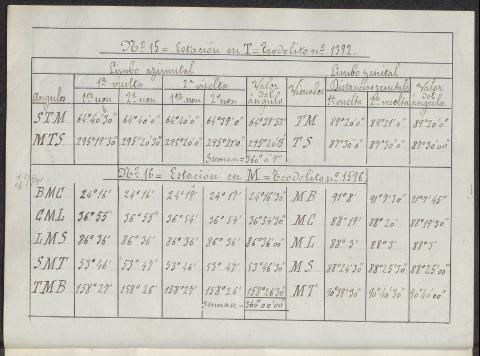 Nº 15 = Estación en T = Teodolito nº 1392.
Limbo azimutal Limbo zenital
1ª vuelta 2ª vuelta Valor del ángulo Visuales Distancias zenitales Valor del ángulo
Angulos 1er non 2º non 1er non 2º non 1ª vuelta 2ª vuelta
STM 64°40'30" 64°40'0" 64°40'0" 64°39'0" 64°39'52" TM 89°20'0" 89°21'0" 89°20'0"
MTS 295°19'30" 295°20'30" 295°20'0" 295°21'0" 295°20'15" TS 87°30'0" 87°30'0" 87°30'00"
Suman = 360°0'7"
Nº 16 = Estación en M = Teodolito nº 1596.
BMC 24°16' 24°16' 24°19' 24°17' 24°16'30" MB 91°8' 91°7'30" 91°7'45"
CML 36°55' 36°55' 36°54' 36°54' 36°54'30" MC 88°19' 88°20' 88°19'30"
LMS 86°36' 86°36' 86°36' 86°36' 86°36'00" ML 88°3' 88°3' 88°3'
SMT 53°46' 53°47' 53°46' 53°47' 53°46'30" MS 88°24'30" 88°25'30" 88°25'00"
TMB 158°27' 158°26' 158°27' 158°26' 158°26'30" MT 90°39'30" 90°40'30" 90°40'00"
Suman = 360°00'00"